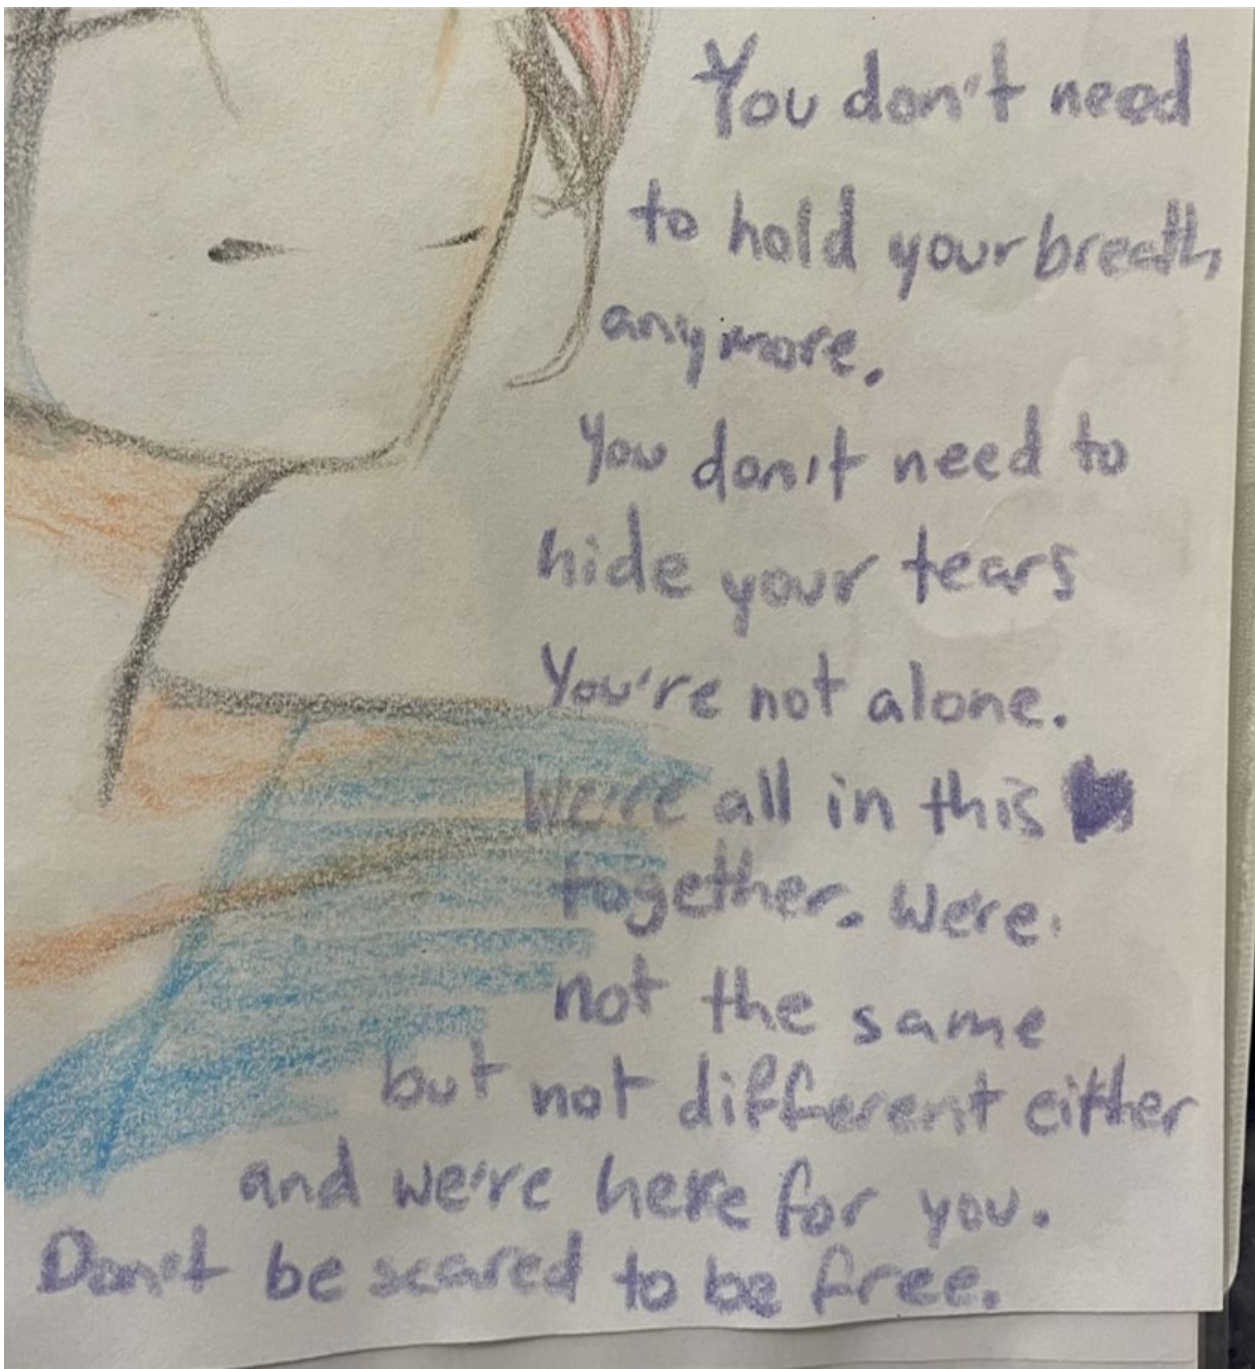 You don't need
to hold your breath
anymore.
You don't need to
hide your tears
You're not alone.
We're all in this
together. We're
not the same
but not different either
and we're here for you.
Don't be scared to be free.